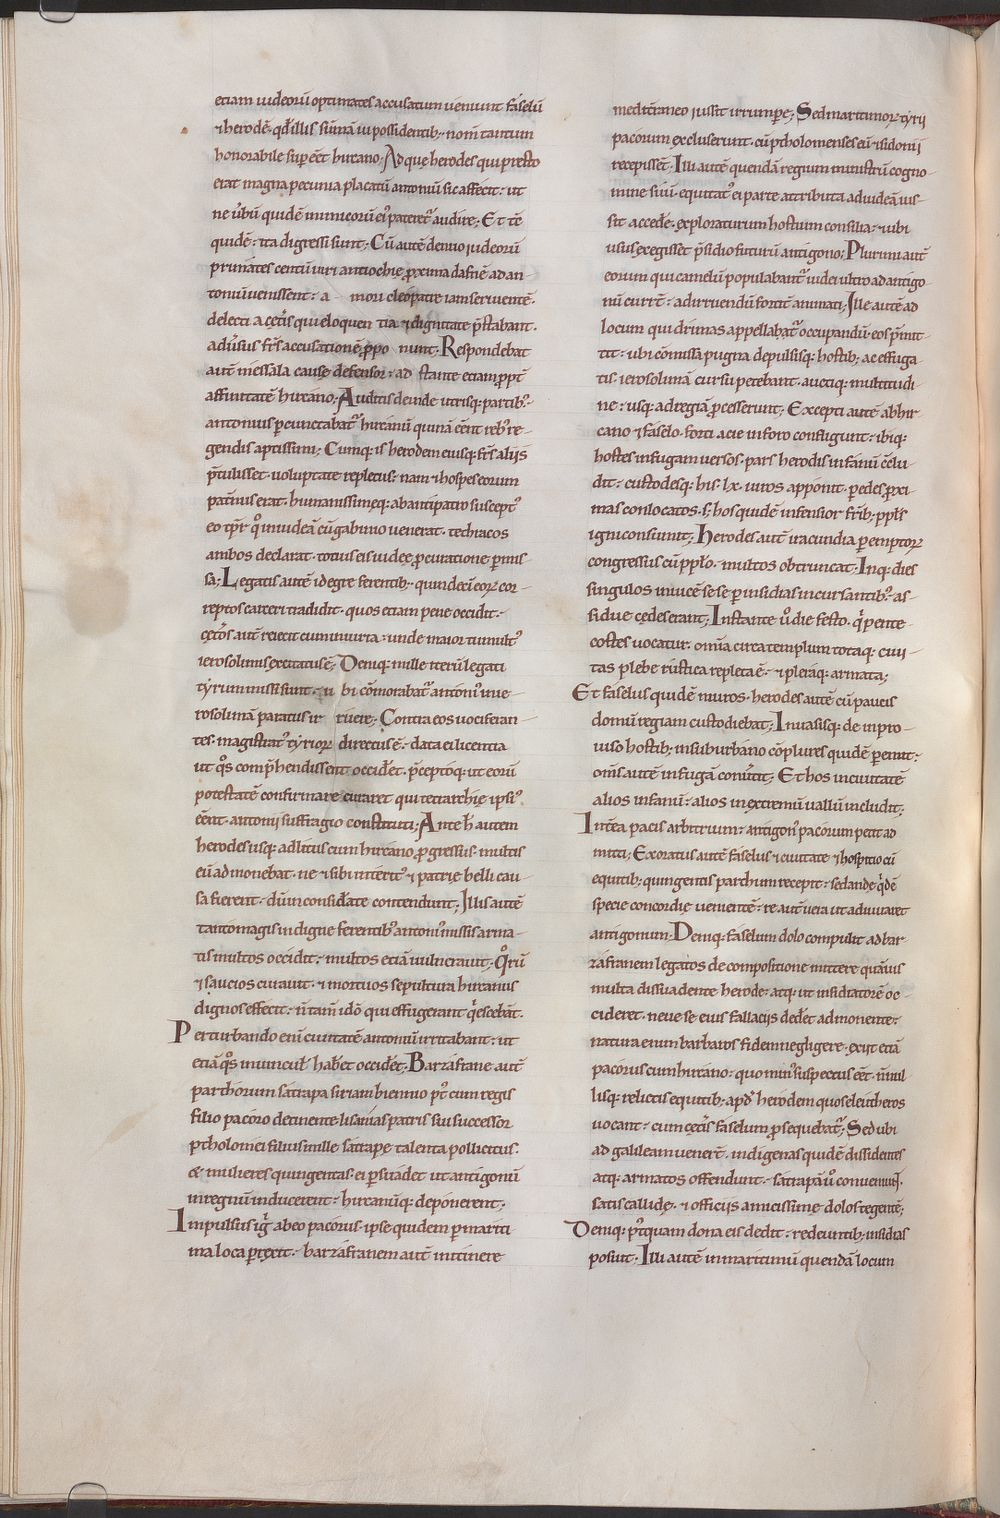 etiam iudeorũ optimates accusatum ueniunt faselũ
⁊ herodẽ. qđ illis sũmã ui possidentib; nom̃ tantum
honorabile supeẽt hircano; Ad quę herodes qui presto
erat magna pecunia placatũ antoniũ sic affecit: ut
ne ũbũ quidẽ inimicorũ ei᾽ pateret᾽ audire; Et tẽ
quidẽ: ita digressi sunt; Cũ autẽ denuo iudeorũ
primates centũ uiri antiochię proxima dafnẽ ad an-
toniũ uenissent: a - mori cleopatre iam seruientẽ.
delecti a cęt̃is qui eloquen tia ⁊ dignitate p̃stabant.
aduersus fr̃s accusationẽ propo nunt. Respondebat
autẽ messala cause defensor: ad stante etiam ppt̃
affinitatẽ hircano; Auditis deinde utrisq; partib;
antonius percunctabat᾽ hircanũ quinã eẽnt reb᾽ re-
gendis aptissimi; Cumq; is herodem eiusq; fr̃s aliis
p̃tulisset. uoluptate repletus: nam ⁊ hospes eorum
pat̃nus erat. humanissimeq; ab antipatro suscept᾽
eo tp̃r qͦ in iudeã cũ gabinio uenerat. techracos
ambos declarat. totius eis iudeę procuratione permis
sa; Legatis autẽ id egre ferentib;. quindecĩ eorꝝ cor-
reptos carceri tradidit. quos etiam pene occidit.
cęt̃os aut̃ reiecit cum iniuria: unde maior tumult᾽
ierosolimis excitatus ẽ; Deniq; mille iterũ legati
tyrum missi sunt. u bi cõmorabat᾽ antoni᾽ in ie-
rosolimã paratus ir ruere; Contra eos uociferan-
tes. magistrat᾽ tyriorꝝ directus ẽ. data ei licentia
ut qͦs comp̃hendissent occidet. p̃ceptoq; ut eorũ
potestatẽ confirmare curaret qui tetrarchię ipsi᾽
eẽnt. antonii suffragio constituti; Ante h̃ autem
herodes usq; ad litus cum hircano progressus. multis
eũ admonebat. ne ⁊ sibi interit᾽ ⁊ patrię belli cau-
sa fierent. dũ inconsid̃ate contendunt; Illis autẽ
tanto magis indigne ferentib᾽ antoni᾽ missis arma-
tis multos occidit: multos etiã uulnerauit; qͦrũ
⁊ saucios curauit. ⁊ mortuos sepultura hircanus
dignos effecit: ñ tam̃ idõ qui effugerant qͥescebãt.
Perturbando enĩ ciuitatẽ antoniũ irritabant: ut
etiã qͦs in uincul̃ habet occidet. Barzafrane aut̃
parthorum satrapa siriam biennio pͦt cum regis
filio pacoro detinente lisanias patris sui successor
ptholomei filiusmille satrape talenta pollicitus.
& mulieres quingentas. ei persuadet ut antigonũ
in regnũ inducerent: hircanũq; deponerent;
Impulsus igͥ ab eo pacorus. ipse quidem per mariti
ma loca pertexit: barzafranem aut̃ initinere
medit̃raneo iussit irrumpere; Sed maritimorꝝ tyrii
pacorum excluserunt. cũ ptholomenses eũ ⁊ sidonii
recepissẽt; Illi autẽ quendã regium ministrũ cogno-
mine suũ. equitat᾽ ei parte attributa ad iudeã ius-
sit accedẽ: exploraturum hostium consilia: ⁊ ubi
usus exegisset p̃sidio futurũ antigono; Plurimi autẽ
eorum qui camelũ populabant᾽ iudei ultro ad antigo-
nũ currẽt: ad irruendũ fortit̃ animati; Ille autẽ ad
locum qui drimas appellabat᾽ occupandũ eos p̃mit-
tit: ubi cõmissa pugna depulsisq; hostib; ac effuga-
tis. ierosolimã cursu petebant. auctiq; multitudi-
ne: usq; ad regiã processerunt; Excepti autẽ ab hir-
cano ⁊ faselo. forti acie in foro confligunt: ibiq;
hostes in fugam uersos. pars herodis in fanũ c̃clu-
dit: custodesq; his. lx. uiros apponit. per edes pxi-
mas conlocatos. s; hos quidẽ infensior frib; ppl̃s
igni consumit; Herodes autẽ iracundia peremptorꝝ
congressus cũ pplõ. multos obtruncat; Inq; dies
singulos inuicẽ sese per insidias incursantib᾽. as-
sidue cędes erant; Instante ũͦ die festo. qͥ pente-
costes uocatur. om̃ia circa templum totaq; ciui-
tas plebe rustica repleta ẽ. ⁊ pleraq; armata;
Et faselus quidẽ muros. herodes autẽ cũ paucis
domũ regiam custodiebat; Inuasisq; de inpro-
uiso hostib; in suburbano cõplures quidẽ perimit:
om̃s autẽ in fugã conũtit; Et hos in ciuitatẽ
alios in fanũ: alios in extremũ uallũ includit;
Int̃ea pacis arbitrium: antigon᾽ pacorum petit ad
mitti; Exoratus autẽ faselus ⁊ ciuitate ⁊ hospitio cũ
equitib; quingentis parthum recepit: sedandę qͥdẽ
specie concordię uenientẽ: re autẽ uera ut adiuuaret
antigonum; Deniq; faselum dolo compulit ad bar
zafranem legatos de compositione mittere quãuis
multa dissuadente herode: atq; ut insidiatorẽ oc-
cideret. neue se eius fallaciis dedet admonente:
natura enim barbaros fidem neglegere. exiit etiã
pacorus cum hircano: quo min᾽ suspectus eẽt. ñnul
lisq; relictis equitib; apd᾽ herodem quos eleutheros
uocant: cum cęt̃is faselum prosequebat᾽; Sed ubi
ad galileam uenerẽ. indigenas quidẽ dissidentes
atq; armatos offendunt: satrapã ũͦ conueniunt.
satis callidę. ⁊ officiis amicissimę dolos tegentẽ;
Deniq; pͦtquam dona eis dedit: redeuntib; insidias
posuit. Illi autẽ in maritimũ quendã locum